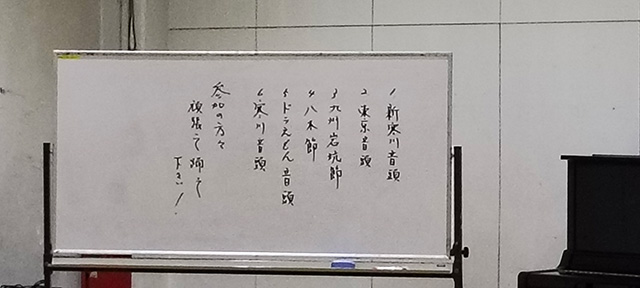 1 新寒川音頭
2 東京音頭
3 九州岩坑節
4 八木節
5 ドラえもん音頭
6 寒川音頭
参加の方々
頑張って踊って
下さい!